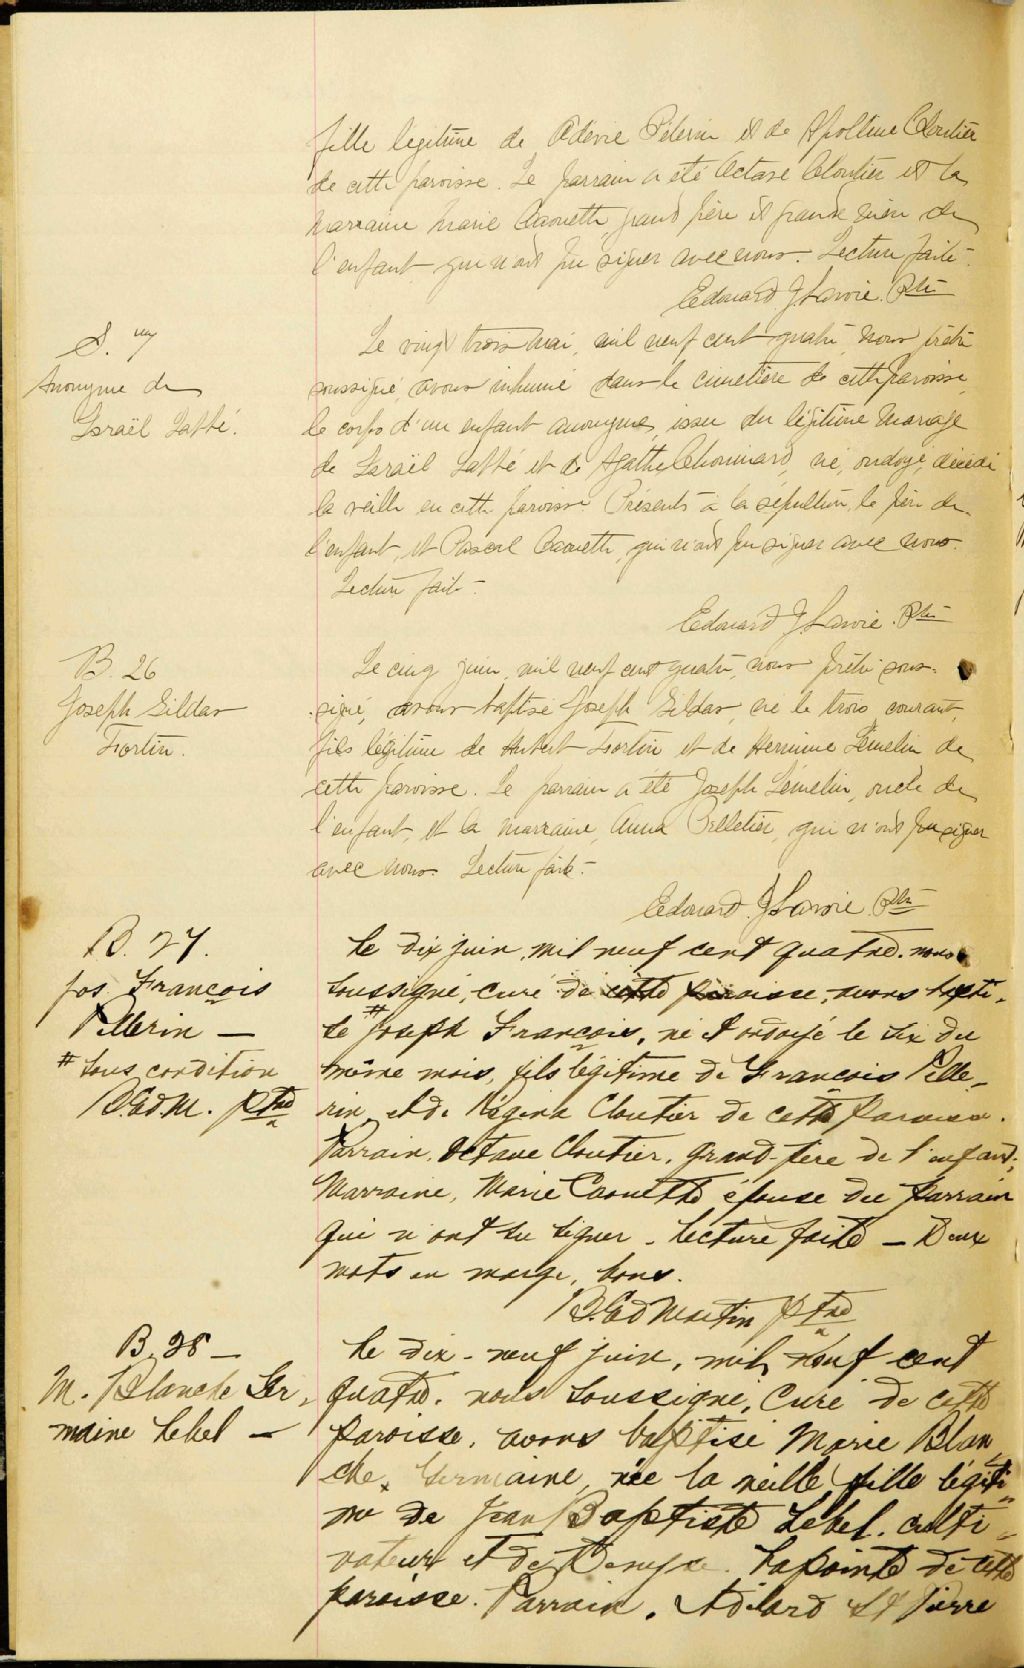 fille légitime de Odevie Pelerin et de Apolline Cloutier
de cette paroisse. Le parrain a été Octave Cloutier et la
marraine Marie Caouette, grand père et grande mère de
l'enfant qui n'ont pu signer avec nous. Lecture faite.
Edouard J Lavoie. Ptre
S. 7
Anonyme de
Israël Labbé.
Le vingt trois mai, mil neuf cent quatre, nous prêtre
soussigné, avons inhumé dans le cimetière de cette paroisse,
le corps d'un enfant anonyme, issu du légitime mariage
de Israël Labbé et de Agathe Chouinard, né, ondoyé, décédé
la veille en cette paroisse. Présents à la sépulture, le père de
l'enfant, et Pascal Caouette, qui n'ont pu signer avec nous.
Lecture faite.
Edouard J Lavoie. Ptre
B. 26
Joseph Gildas
Fortin.
Le cinq juin, mil neuf cent quatre, nous prêtre sous-
signé, avons baptisé Joseph Gildas, né le trois courant,
fils légitime de Hubert Fortin et de Hermine Lémelin de
cette paroisse. Le parrain a été Joseph Lémelin, oncle de
l'enfant, et la marraine, Anna Pelletier, qui n'ont pu signer
avec nous. Lecture faite.
Edouard J Lavoie. Ptre
B. 27.
Jos. François
Pellerin —
# sous condition
B.Ed M. ptre
Le dix juin, mil neuf cent quatre, nous
soussigné, curé de cette paroisse, avons bapti-
sé # Joseph François, né et ondoyé le six du
même mois, fils légitime de François Pelle-
rin, et de Régina Cloutier de cette paroisse.
Parrain, Octave Cloutier, grand-père de l'enfant;
Marraine, Marie Caouette épouse du parrain
qui n'ont su signer. Lecture faite — Deux
mots en marge, bons.
B. Ed Martin ptre
B. 28 —
M. Blanche Ger-
maine Lebel —
Le dix-neuf juin, mil neuf cent
quatre, nous soussigné, curé de cette
paroisse, avons baptisé Marie Blan
che, Germaine, née la veille, fille légiti-
me de Jean Baptiste Lebel, culti-
vateur et de Lapointe de cette
paroisse. Parrain, Adélard St Pierre